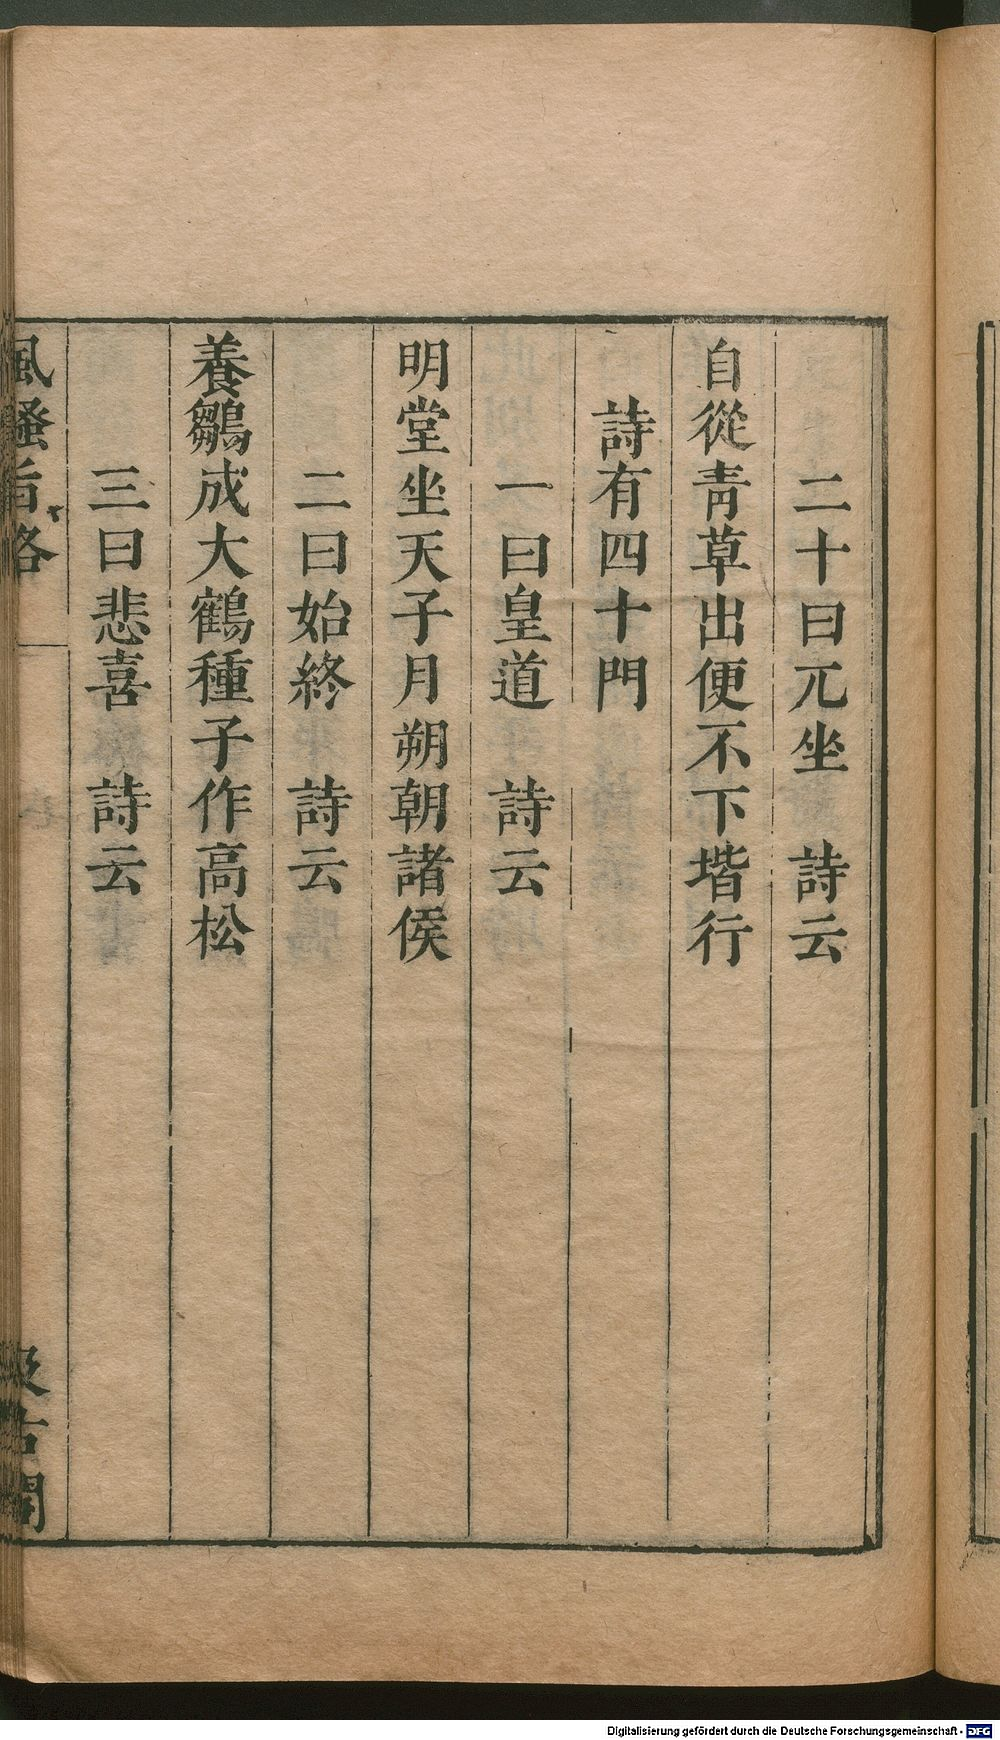 二十曰兀坐　詩云
自從青草出便不下堦行
詩有四十門
一曰皇道　詩云
明堂坐天子月朔朝諸侯
二曰始終　詩云
養鶵成大鶴種子作高松
三曰悲喜　詩云
風騷旨格
汲古閣
Digitalisierung gefördert durch die Deutsche Forschungsgemeinschaft - DFG